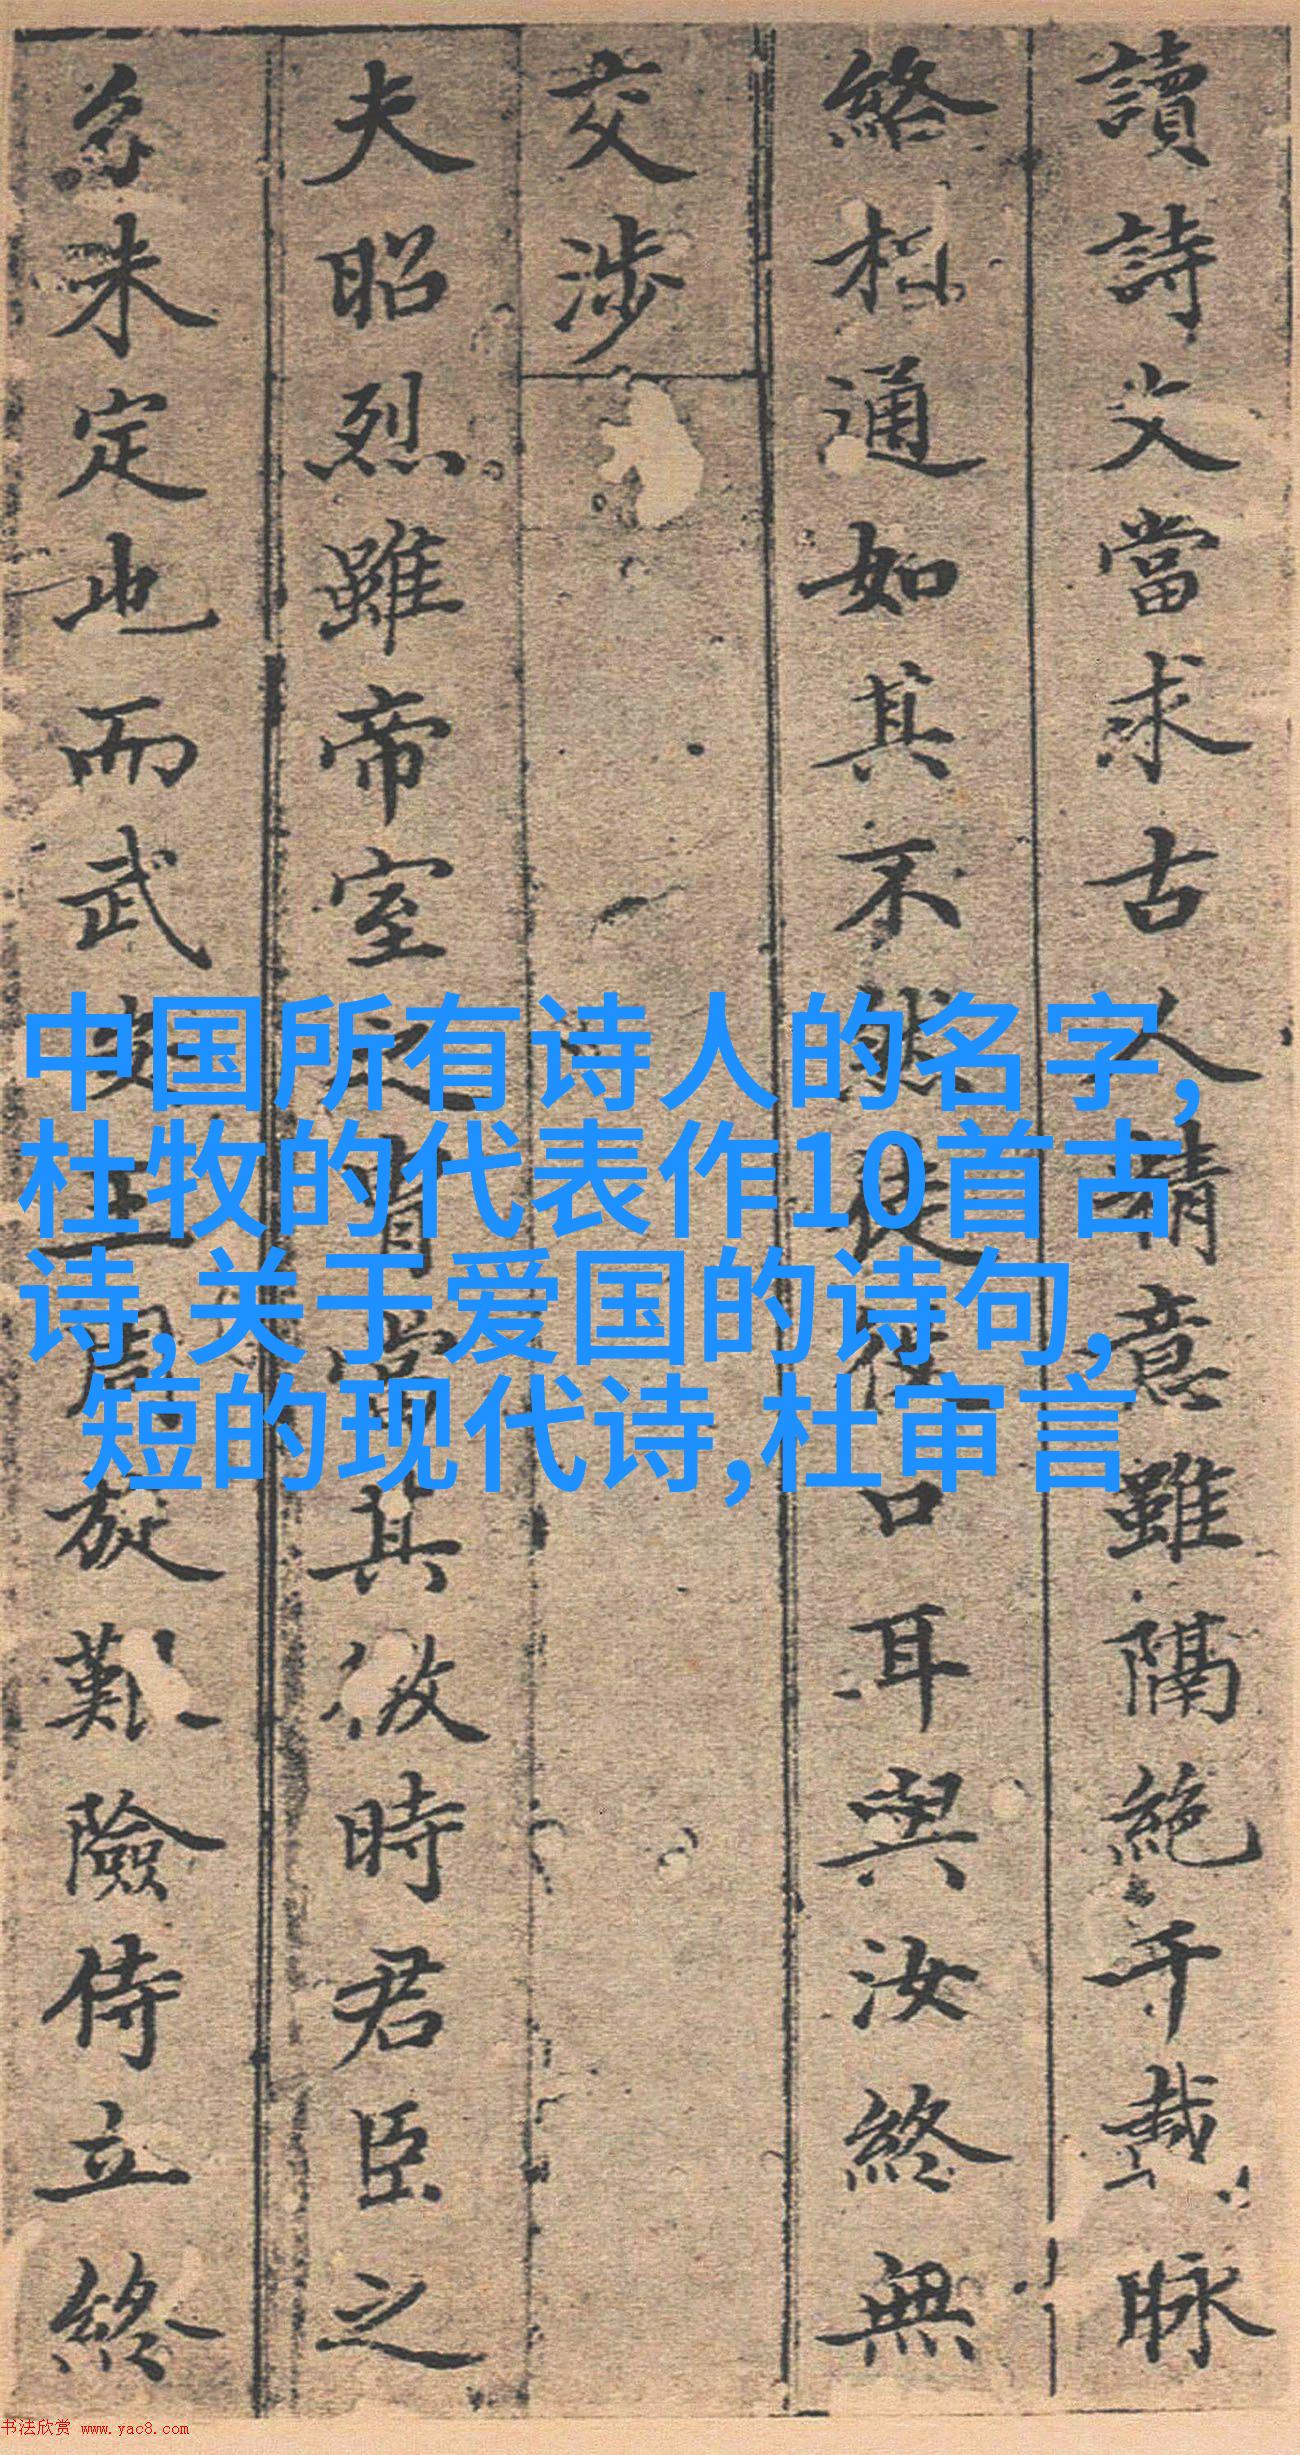 讀詩文當求古人精意雖隔絶千載脉
絡相通如其不然徒
口耳與汝終無
交涉
夫昭烈雖帝室之胄當其微時君臣之
分未定也而武
周旋艱險侍立終
中国所有诗人的名字,
杜牧的代表作10首古
诗,关于爱国的诗句,
短的现代诗,杜审言
书法欣赏 www.yac8.com